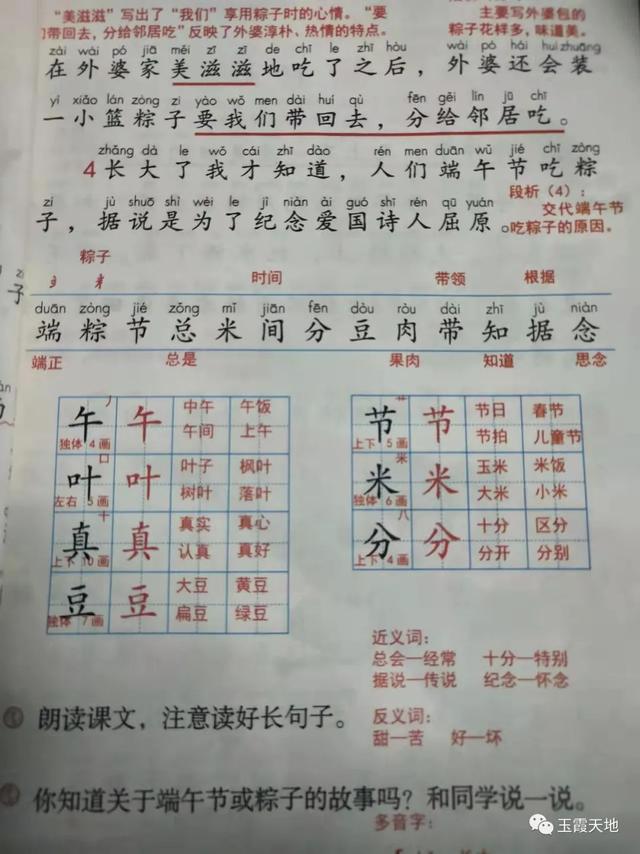 "美滋滋"写出了"我们"享用粽子时的心情。"要
带回去，分给邻居吃"反映了外婆淳朴、热情的特点。
主要写外婆包的
粽子花样多，味道美。
zài wài pó jiā měi zī zī de chī le zhī hòu wài pó hái huì zhuāng
在外婆家美滋滋地吃了之后，外婆还会装
yì xiǎo lán zòng zi yào wǒ men dài huí qù fēn gěi lín jū chī
一小篮粽子要我们带回去，分给邻居吃。
zhǎng dà le wǒ cái zhī dào rén men duān wǔ jié chī zòng
4长大了我才知道，人们端午节吃粽
zi jù shuō shì wèi le jì niàn ài guó shī rén qū yuán
子，据说是为了纪念爱国诗人屈原。
段析（4）：
交代端午节
吃粽子的原因。
粽子
时间 带领 根据
duān zòng jié zǒng mǐ jiān fēn dòu ròu dài zhī jù niàn
端粽节总米间分豆肉带知据念
端正 总是 果肉 知道 思念
午 午 中午 午饭
独体 4画 午间 上午
叶 叶 叶子 枫叶
左右 5画 树叶 落叶
真 真 真实 真心
上下 10画 认真 真好
豆 豆 大豆 黄豆
独体 7画 扁豆 绿豆
节 节 节日 春节
上下 5画 节拍 儿童节
米 米 玉米 米饭
独体 6画 大米 小米
分 分 十分 区分
上下 4画 分开 分别
近义词：
总会—经常 十分—特别
据说—传说 纪念—怀念
朗读课文，注意读好长句子。
反义词：
甜—苦 好—坏
你知道关于端午节或粽子的故事吗？和同学说一说。
多音字：
玉霞天地